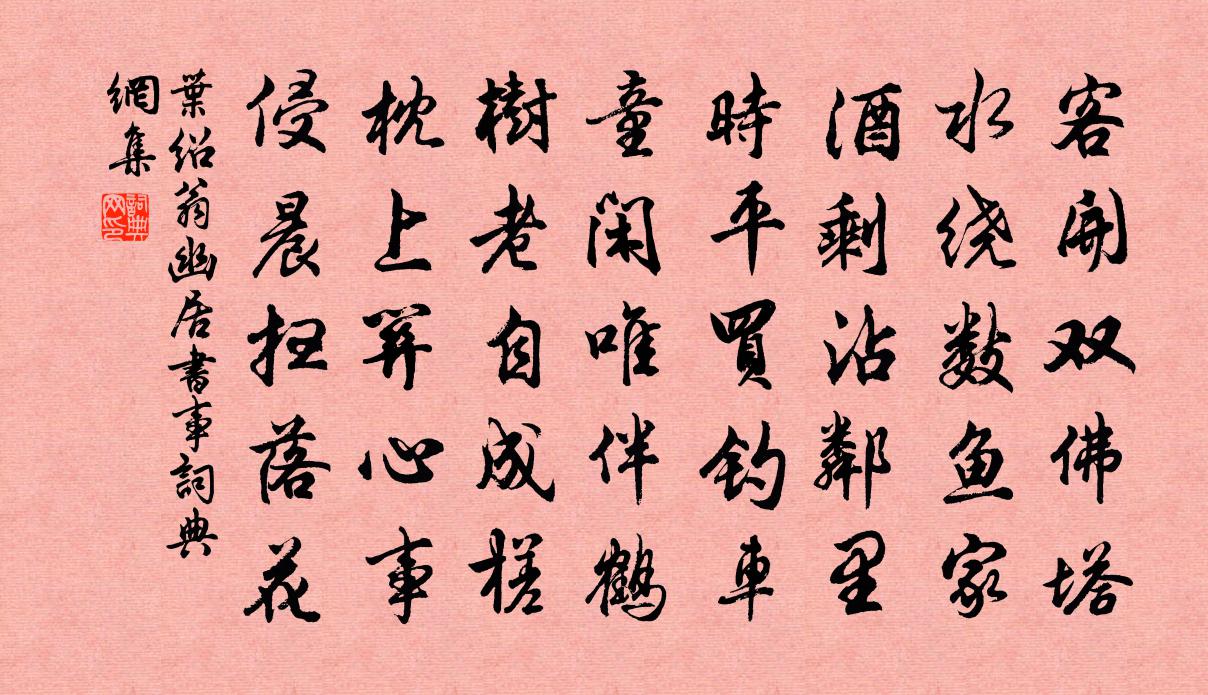 客開双佛塔
水绕数鱼家
酒剩沾鄰里
時平買钓車
童閑唯伴鶴
樹老自成槎
枕上筭心事
侵晨扫落花
葉绍翁幽居書事詞典
網集
詞典网印